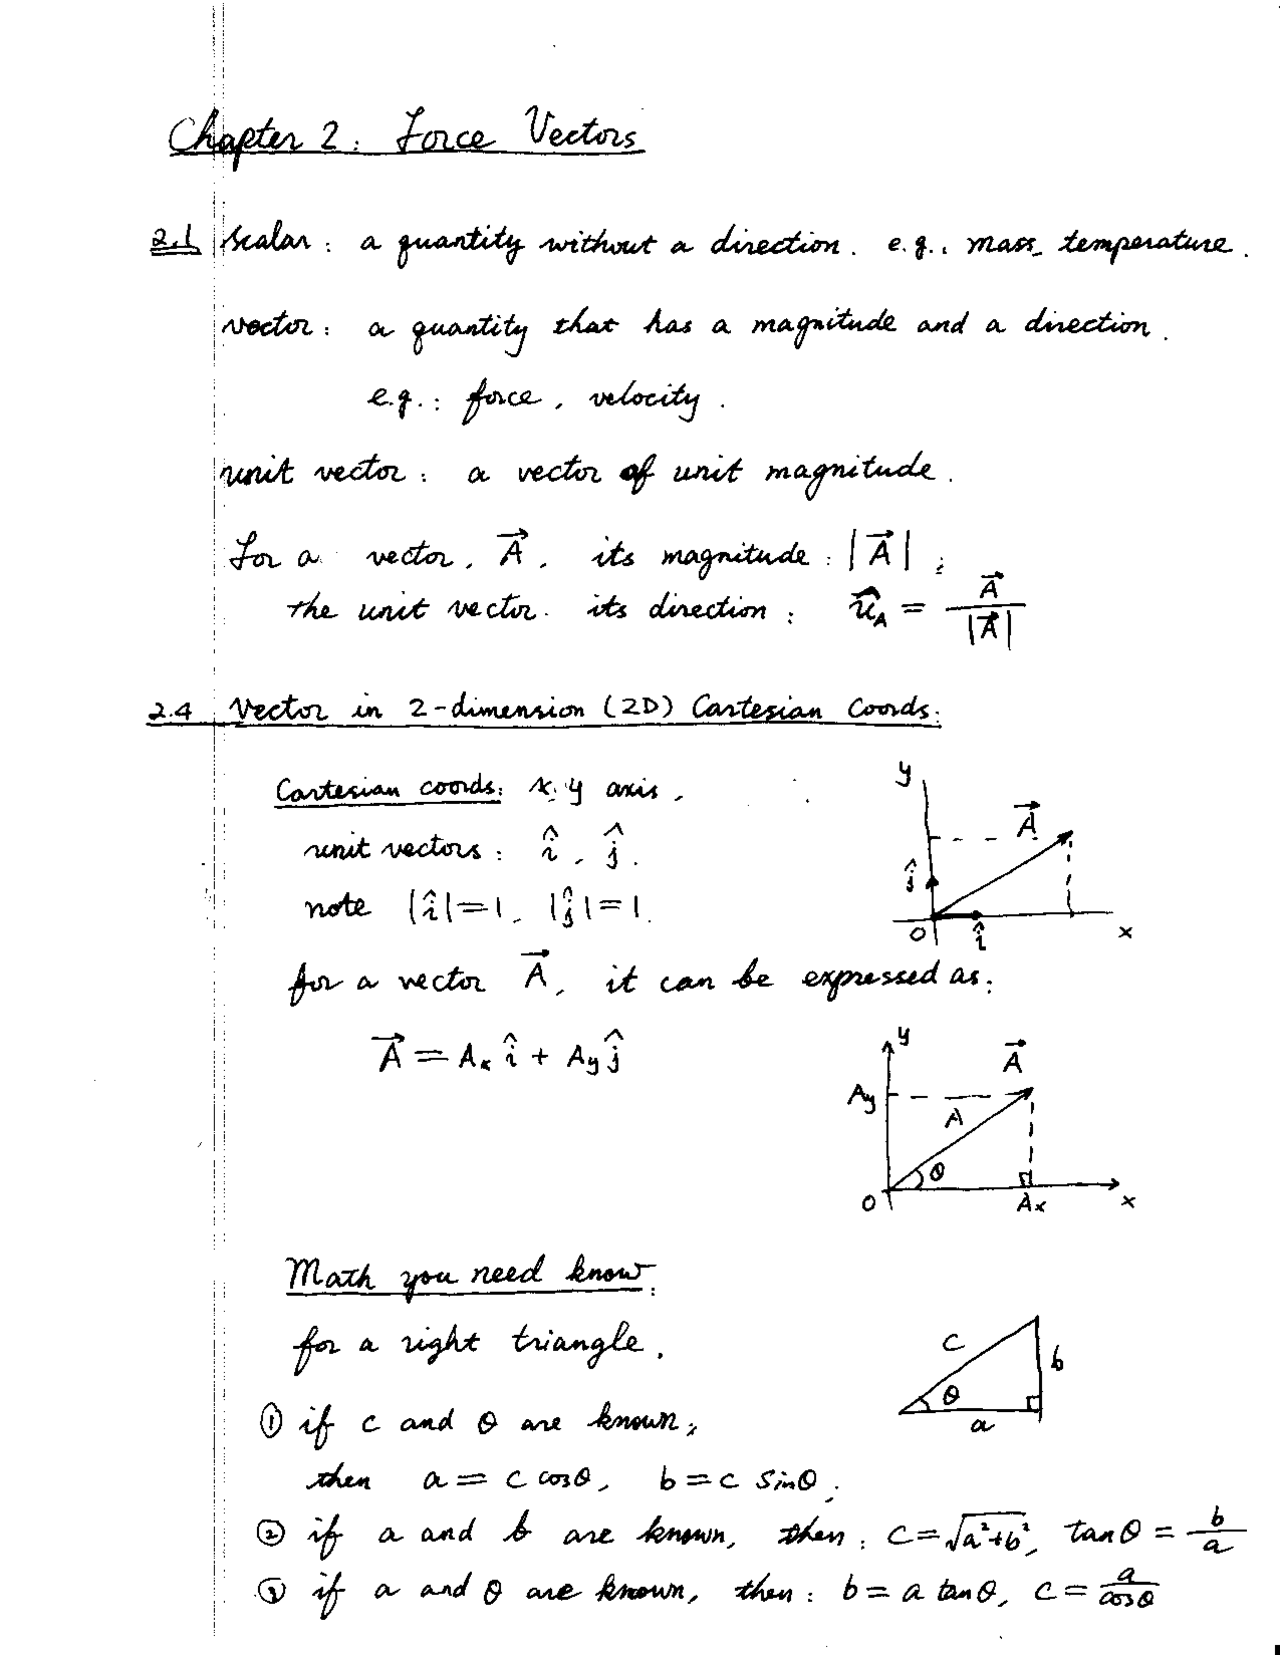 Chapter 2: Force Vectors
2.1 Scalar: a quantity without a direction. e.g.: mass, temperature.
vector: a quantity that has a magnitude and a direction.
e.g.: force, velocity.
unit vector: a vector of unit magnitude.
For a vector, A⃗, its magnitude: |A⃗|;
the unit vector. its direction: û_A = A⃗ / |A⃗|
2.4 Vector in 2-dimension (2D) Cartesian Coords:
Cartesian coords: x, y axis,
unit vectors: î, ĵ.
note |î|=1, |ĵ|=1.
y
A⃗
ĵ
O î x
for a vector A⃗, it can be expressed as:
A⃗ = A_x î + A_y ĵ
y
A⃗
A_y
A
θ
O A_x x
Math you need know:
for a right triangle,
c
b
θ
a
① if c and θ are known,
then a = c cosθ, b = c sinθ;
② if a and b are known, then: c = √(a²+b²), tanθ = b/a
③ if a and θ are known, then: b = a tanθ, c = a/cosθ